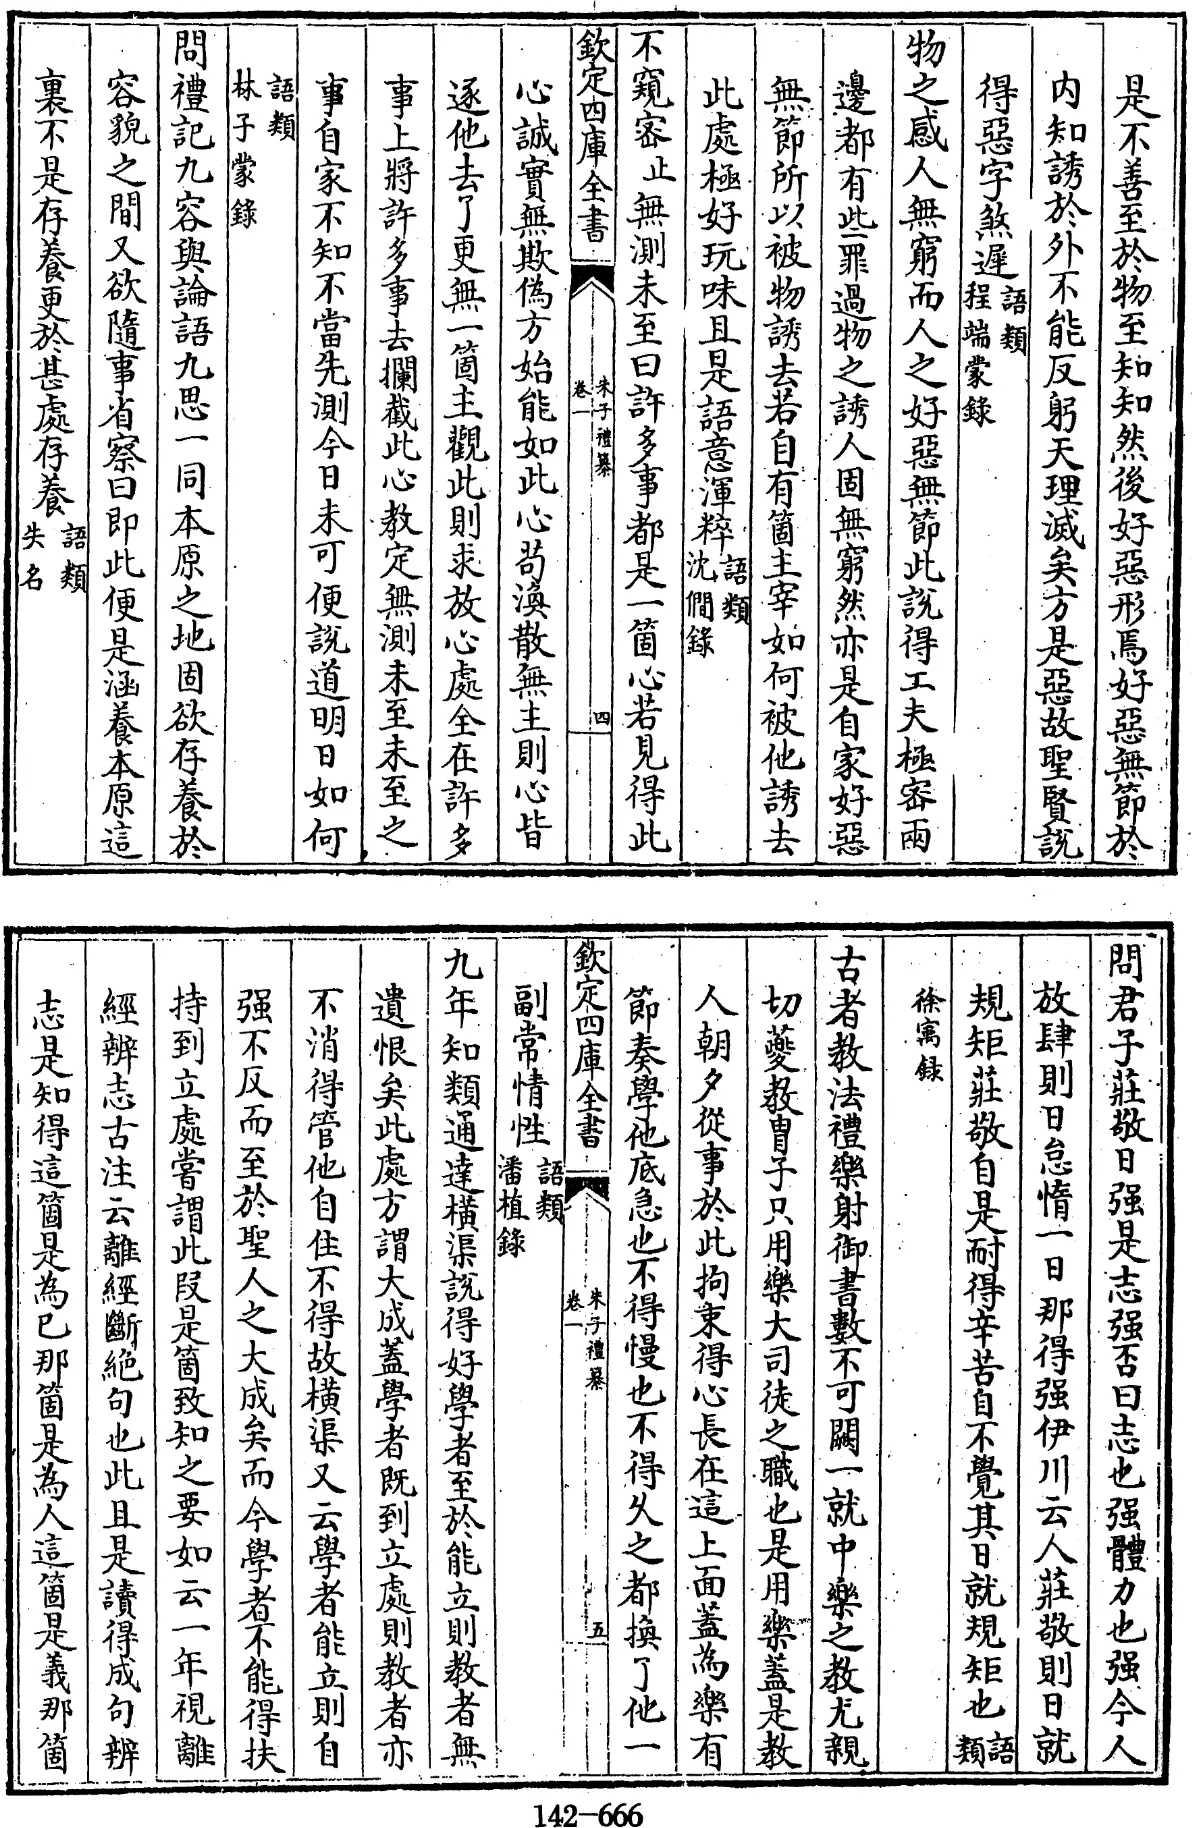 是不善至於物至知知然後好惡形焉好惡無節於
内知誘於外不能反躬天理滅矣方是惡故聖賢説
得惡字煞遲語類
程端蒙録
物之感人無窮而人之好惡無節此説得工夫極宻兩
邊都有些罪過物之誘人固無窮然亦是自家好惡
無節所以被物誘去若自有箇主宰如何被他誘去
此處極好玩味且是語意渾粹語類
沈僩録
不窺宻止無測未至曰許多事都是一箇心若見得此
欽定四庫全書
朱子禮纂
卷一
四
心誠實無欺偽方始能如此心苟渙散無主則心皆
逐他去了更無一箇主觀此則求放心處全在許多
事上將許多事去攔截此心教定無測未至未至之
事自家不知不當先測今日未可便説道明日如何
語類
林子蒙録
問禮記九容與論語九思一同本原之地固欲存養於
容貌之間又欲隨事省察曰即此便是涵養本原這
裏不是存養更於甚處存養語類
失名
問君子莊敬日强是志强否曰志也强體力也强今人
放肆則日怠惰一日那得强伊川云人莊敬則日就
規矩莊敬自是耐得辛苦自不覺其日就規矩也語類
徐㝢録
古者教法禮樂射御書數不可闕一就中樂之教尤親
切夔教胄子只用樂大司徒之職也是用樂蓋是教
人朝夕從事於此拘束得心長在這上面蓋為樂有
節奏學他底急也不得慢也不得久之都換了他一
欽定四庫全書
朱子禮纂
卷一
五
副常情性語類
潘植録
九年知類通達横渠説得好學者至於能立則教者無
遺恨矣此處方謂大成蓋學者既到立處則教者亦
不消得管他自住不得故横渠又云學者能立則自
强不反而至於聖人之大成矣而今學者不能得扶
持到立處嘗謂此叚是箇致知之要如云一年視離
經辨志古注云離經斷絶句也此且是讀得成句辨
志是知得這箇是為已那箇是為人這箇是義那箇
142-666